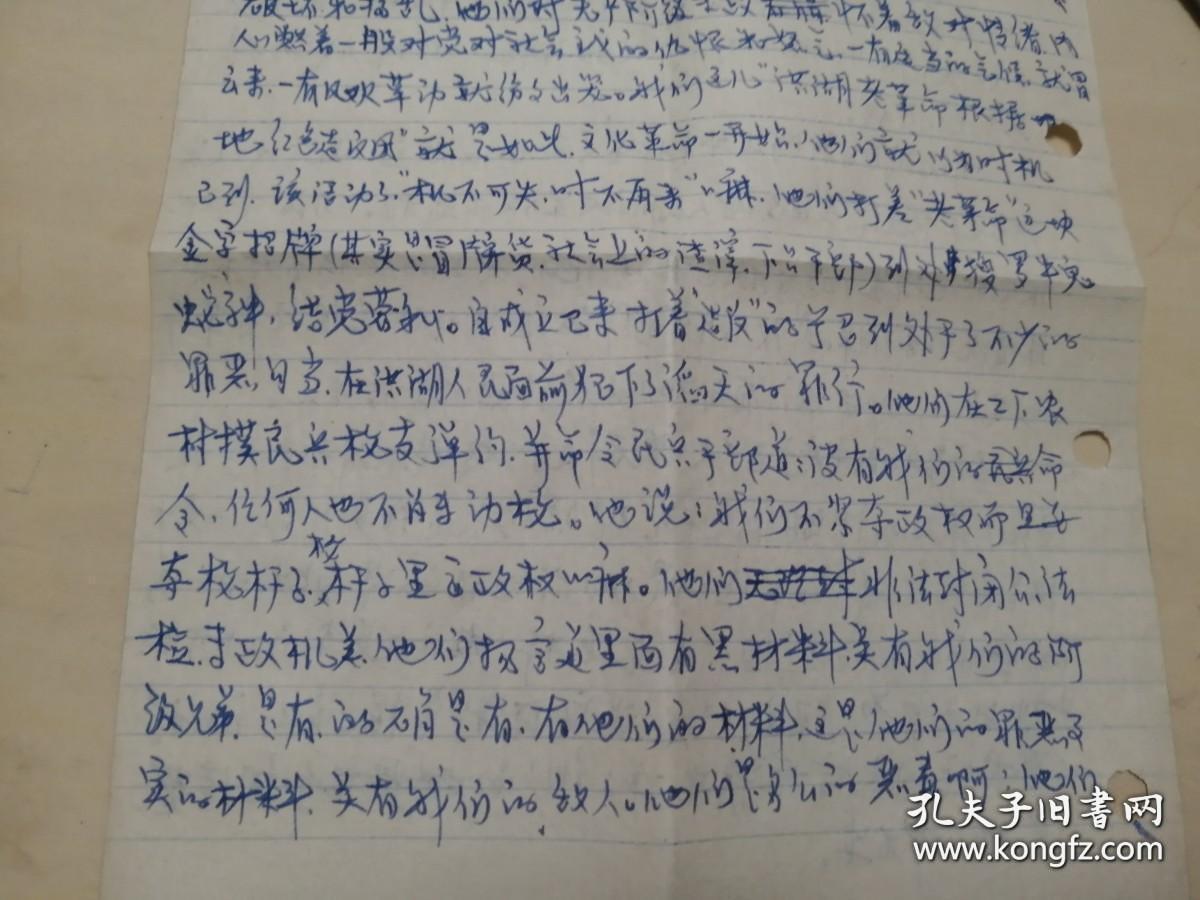 破坏和捣乱,他们对无产阶级专政怀着敌对情绪,内
心燃着一股对党对社会主义的仇恨和怒气,一有适当的气候,就冒
出来,一有风吹草动就纷纷出笼。我们这儿"洪湖老革命根据
地红色造反团"就是如此,文化革命一开始,他们就以为时机
已到,该活动了,"机不可失,时不再来"嘛,他们打着"老革命"这块
金字招牌(其实是冒牌货,社会上的渣滓,下台干部)到处搜罗牛鬼
蛇神,结党营私。自成立已来打着"造反"的号召到处干了不少的
罪恶勾当,在洪湖人民面前犯下了滔天的罪行。他们在二下农
村摸民兵枪支弹药,并命令民兵干部道:没有我们的命
令,任何人也不准动枪。他说:我们不只夺政权而且要
夺枪杆子,枪杆子里面出政权嘛。他们非法封闭公法
检,手政机关,他们扬言这里面有黑材料,关有我们的阶
级兄弟,是有,的确是有,有他们的材料,这是他们的罪恶
实的材料,关有我们的敌人。他们是多么的恶毒啊;他们
孔夫子旧书网
www.kongfz.com